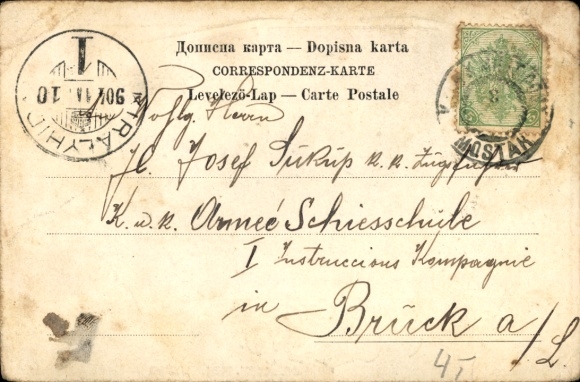 Дописна карта — Dopisna karta
CORRESPONDENZ-KARTE
Levelező-Lap — Carte Postale
KIRÁLYHIDA
I
904
10
MOSTAR
Wohlg. Herrn
Josef Sukup k. k. Zugsführer
K. u. k. Armeé Schiesschule
I Instruccions Kompagnie
in Brück a/L.
4,-